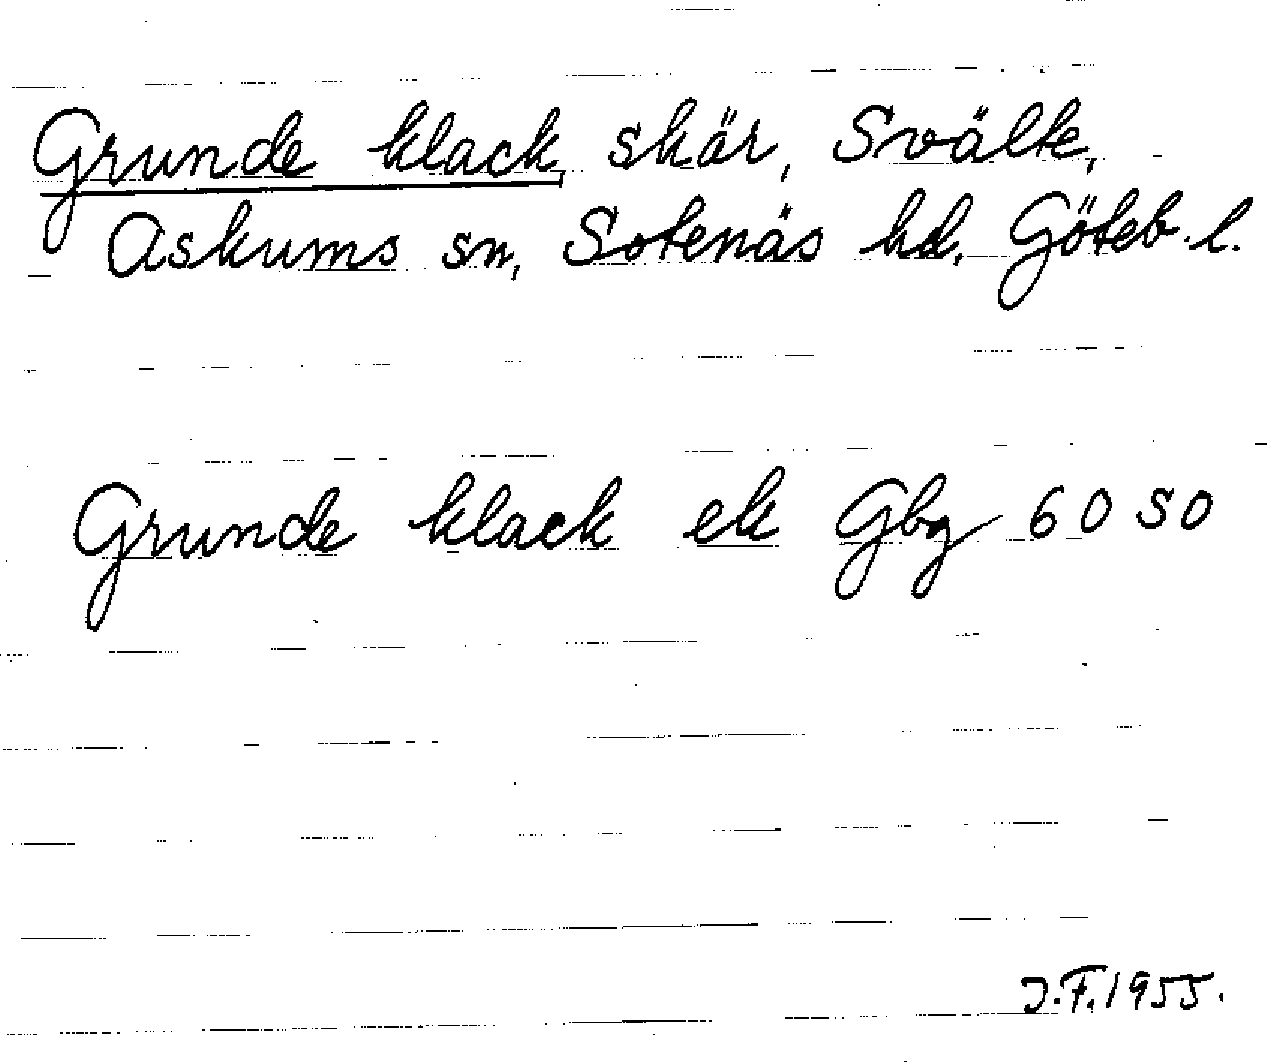 Grunde klack, skär, Svälte,
Askums sn, Sotenäs hd. Göteb. l.
Grunde klack ek Gbg 6050
J.F. 1955.